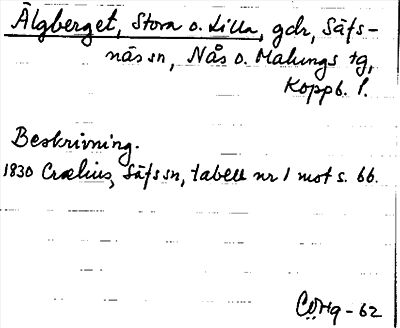 Älgberget, Stora o. Lilla, gdr, Säfs-
näs sn, Nås o. Malungs tg,
Koppb. l.
Beskrivning.
1830 Crælius, Säfs sn, tabell nr 1 mot s. 66.
CÖHg - 62